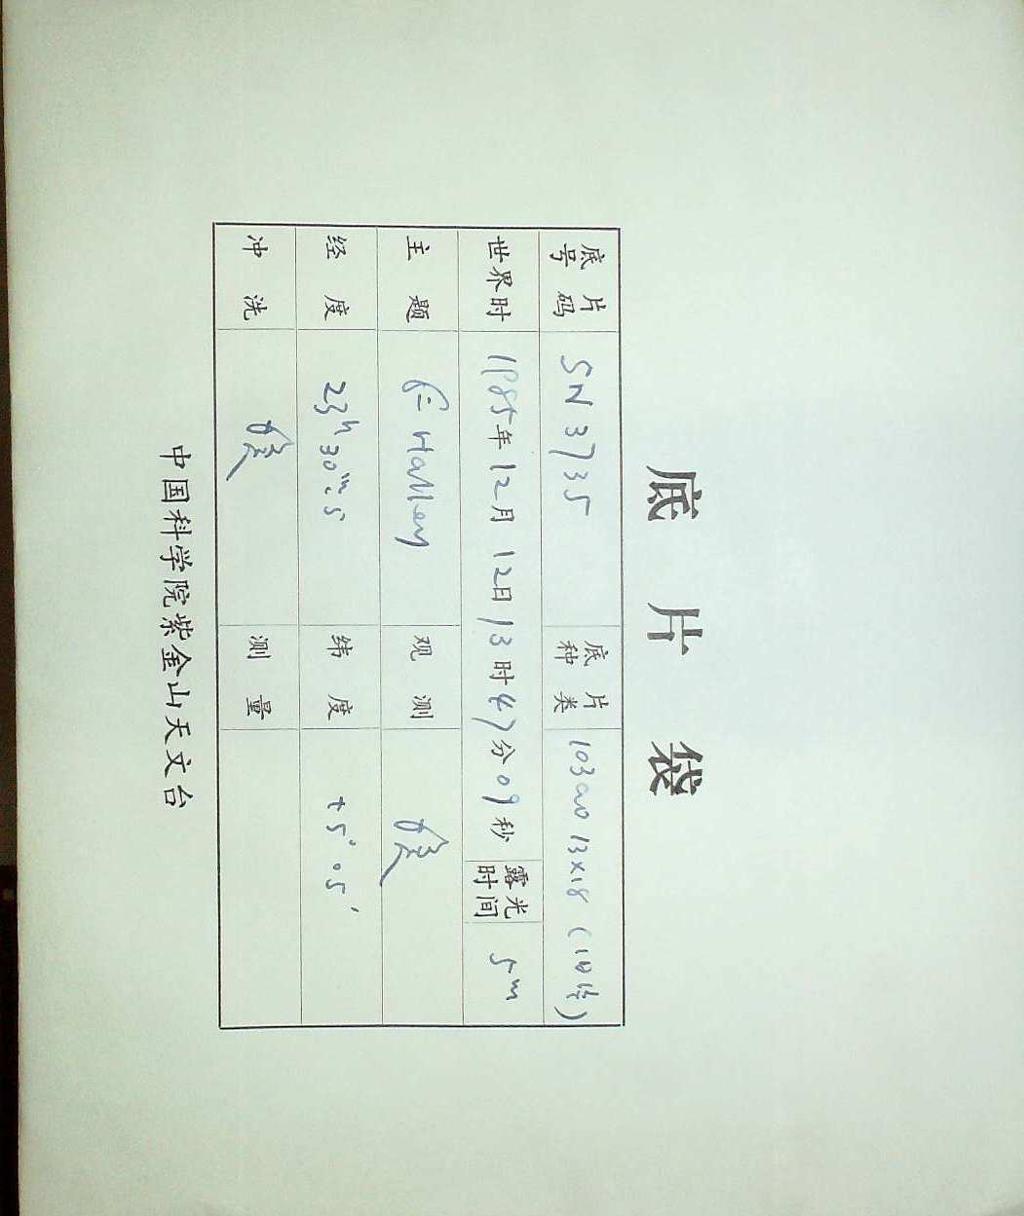 底片袋
底片号码 SN 3735 底片种类 103a0 13×18
世界时 1985年12月12日13时47分09秒 露光时间 5m
主题 Halley 观测
经度 23h 30m.5 纬度 +5° 05′
冲洗 测量
中国科学院紫金山天文台